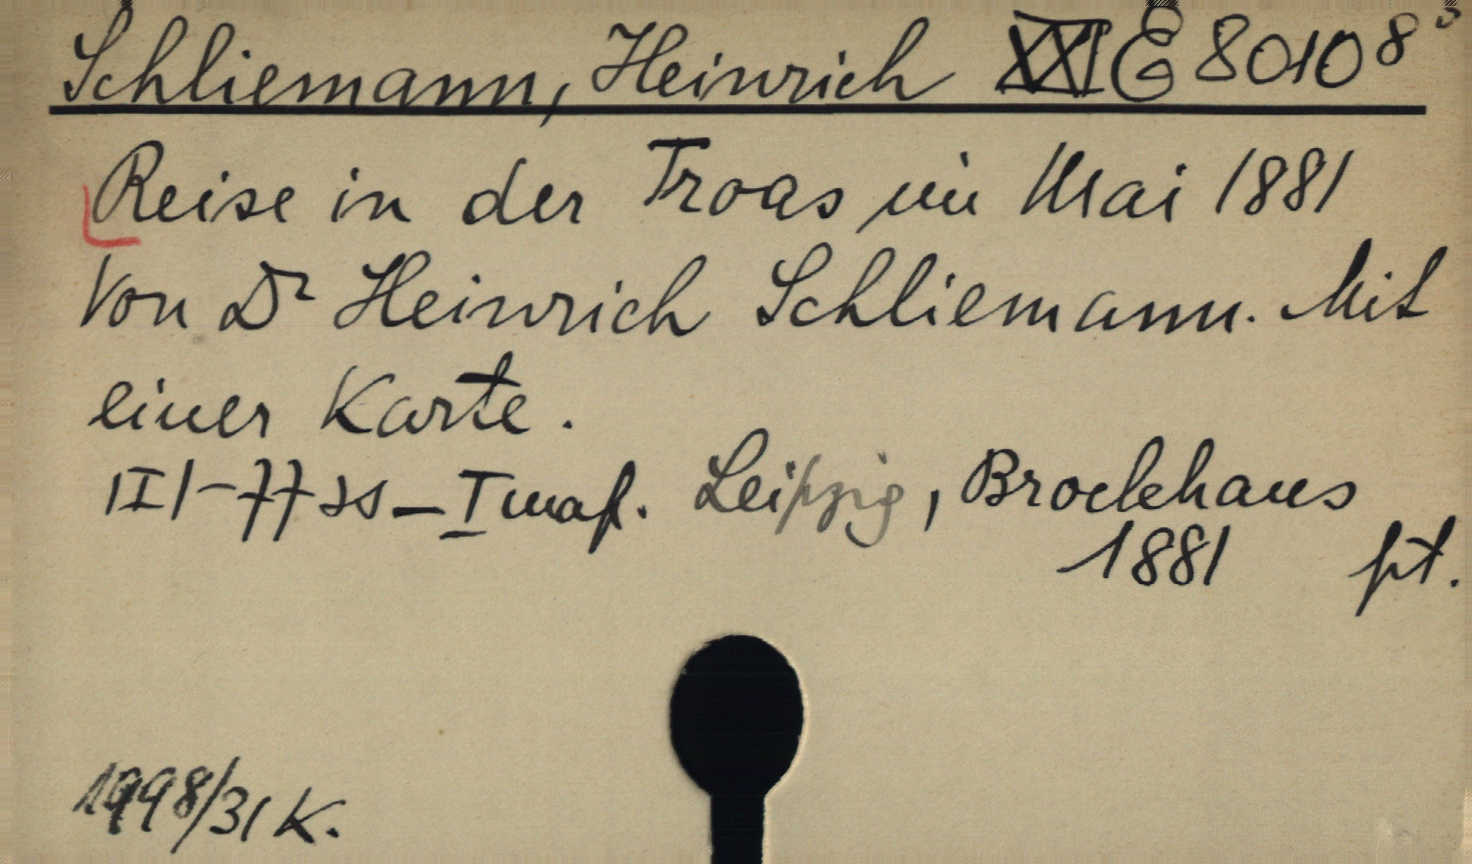 Schliemann, Heinrich XXI E 8010 8°
Reise in der Troas im Mai 1881
Von Dr Heinrich Schliemann. Mit
einer Karte.
|II|-77 ss - I map. Leipzig, Brockhaus
1881 pt.
1998/31 K.